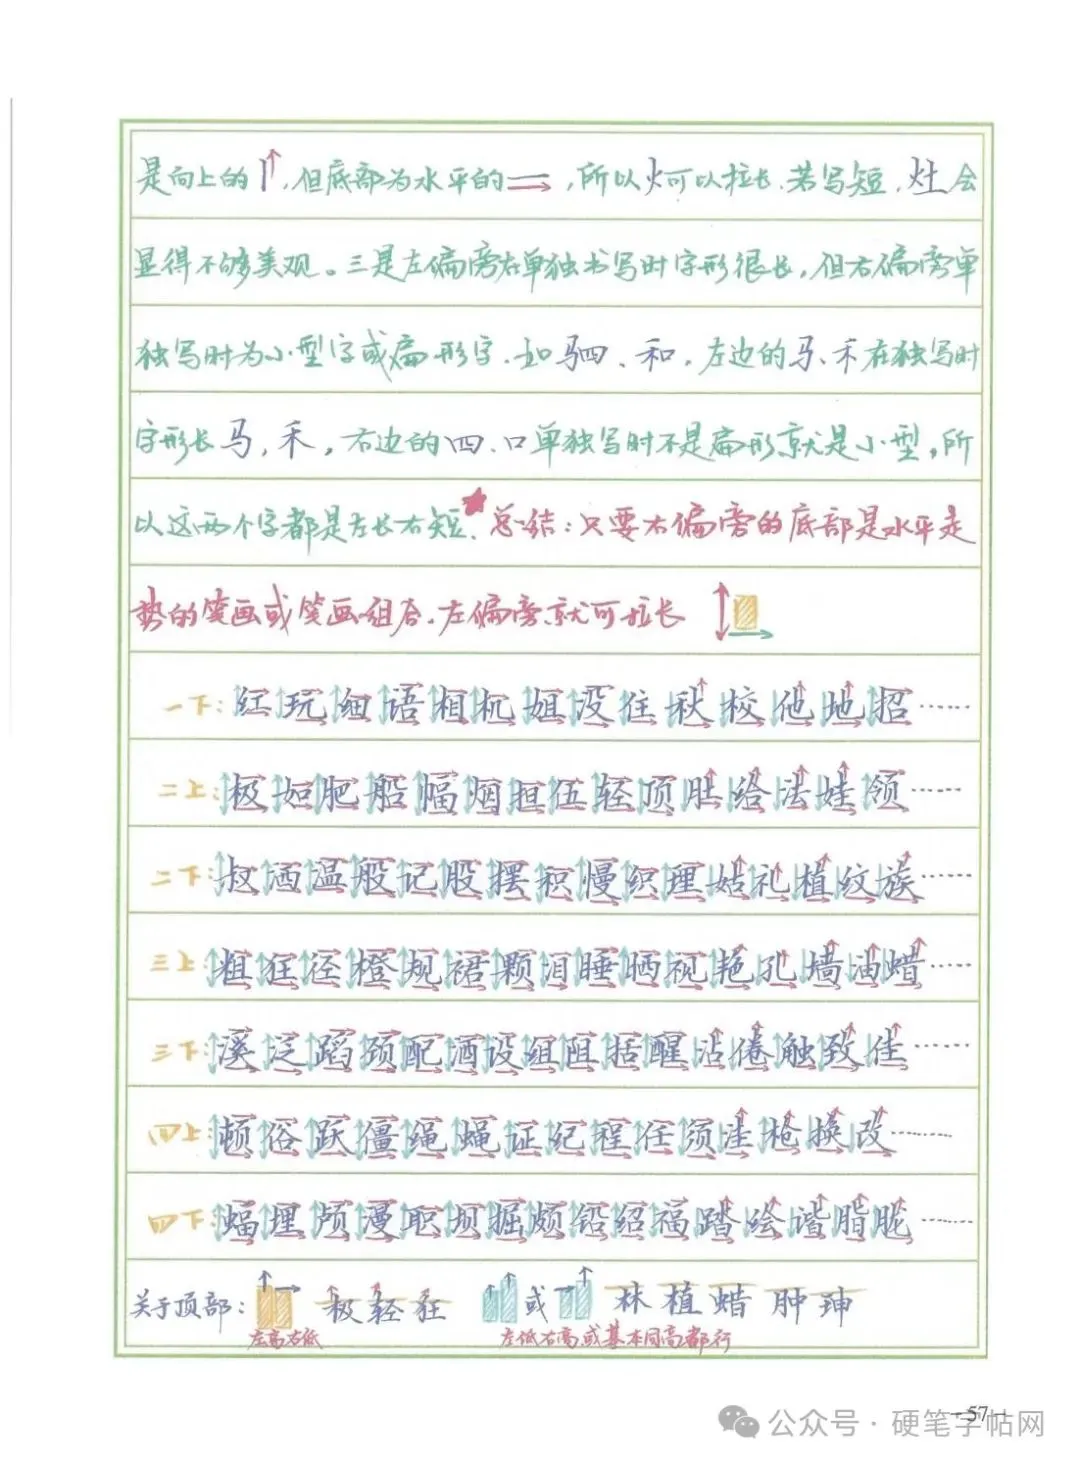 是向上的，但底部为水平的，所以火可以拉长，若写短，灶会
显得不够美观。三是左偏旁在单独书写时字形很长，但右偏旁单
独写时为小型字或扁形字，如驷、和，左边的马、禾在独写时
字形长马，禾，右边的四、口单独写时不是扁形就是小型，所
以这两个字都是左长右短、★总结：只要右偏旁的底部是水平走
势的笔画或笔画组合，左偏旁就可拉长
一下：红玩细语相机姐没住秋校他地招……
二上：极如肥船幅烟担伍轻顶肚给法娃领……
二下：叔洒温般记股摆积慢织理姑礼植纹族……
三上：粗狂径橙规裙颗泪睡晒视艳孔墙油蜡……
三下：溪泛蹈颈配酒设组阻括醒沾倦触致佳……
四上：顿俗跃僵绳蝇证纪程任须洼枪换改……
四下：蝠埋颅漫职坝掘颇铅绍福踏绘谐脂胧……
关于顶部： 极轻狂 或 林植蜡肿珅
左高右低 左低右高或基本同高都行
-57-
公众号·硬笔字帖网